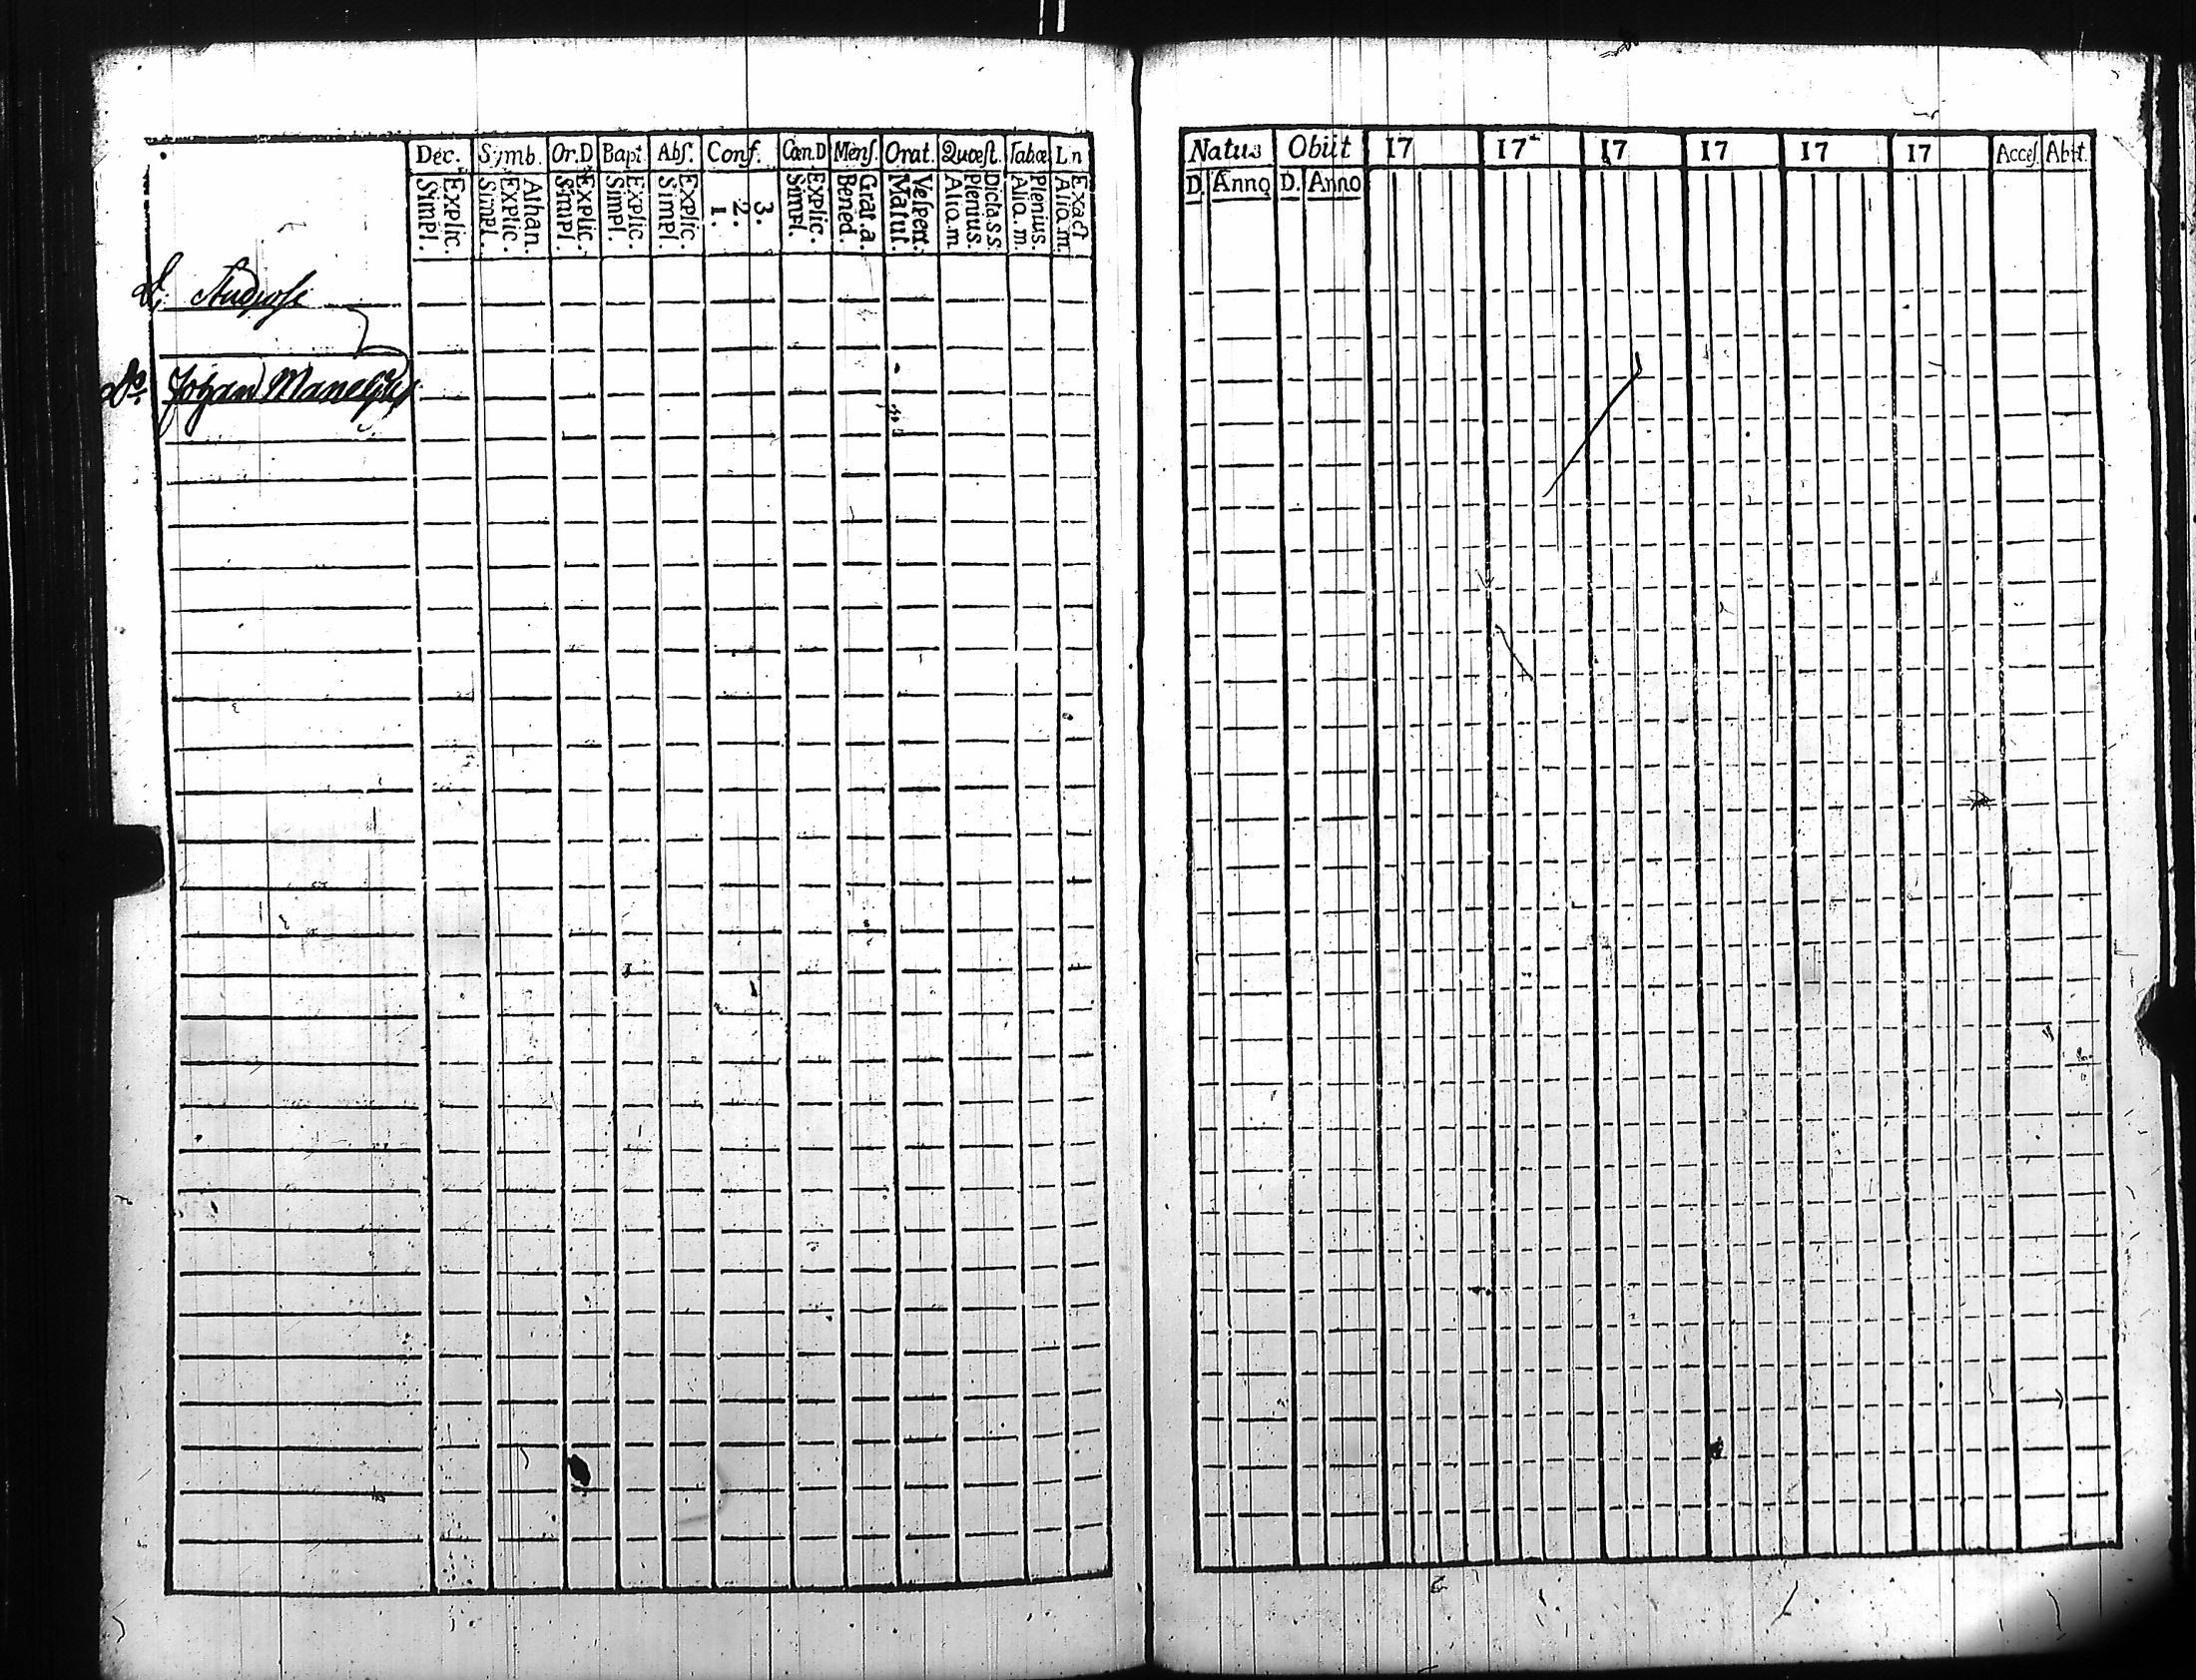 Dec. Symb. Or.D Bapt. Abſ. Conf. Cœn.D Menſ. Orat. Quæſt. Tabœ Ln
Simpl. Explic. Simpl. Explic. Athan. Simpl. Explic. Simpl. Explic. Simpl. Explic. 1. 2. 3. Simpl. Explic. Bened. Grat.a. Matut. Veſpert. Aliq.m. Plenius. Dicta.s.s. Aliq.m. Plenius. Aliq.m. Exact
Johan
Natus Obiit 17 17 17 17 17 17 Acceſ. Abiit.
D. Anno D. Anno